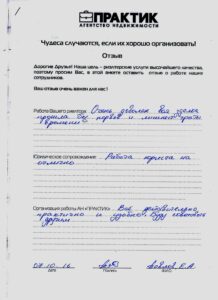 ПРАКТИК
АГЕНТСТВО НЕДВИЖИМОСТИ
Чудеса случаются, если их хорошо организовать!
Отзыв
Дорогие друзья! Наша цель - риэлтерские услуги высочайшего качества,
поэтому просим Вас, в этой анкете оставить отзыв о работе наших
сотрудников.
Ваш отзыв очень важен для нас!
Работа Вашего риелтора Очень доволен
прошла
времени
Юридическое сопровождение Работа юриста на
отлично
Организация работы АН «ПРАКТИК» Всё действительно
практично и удобно. Буду советовать
друзьям
07.10.16